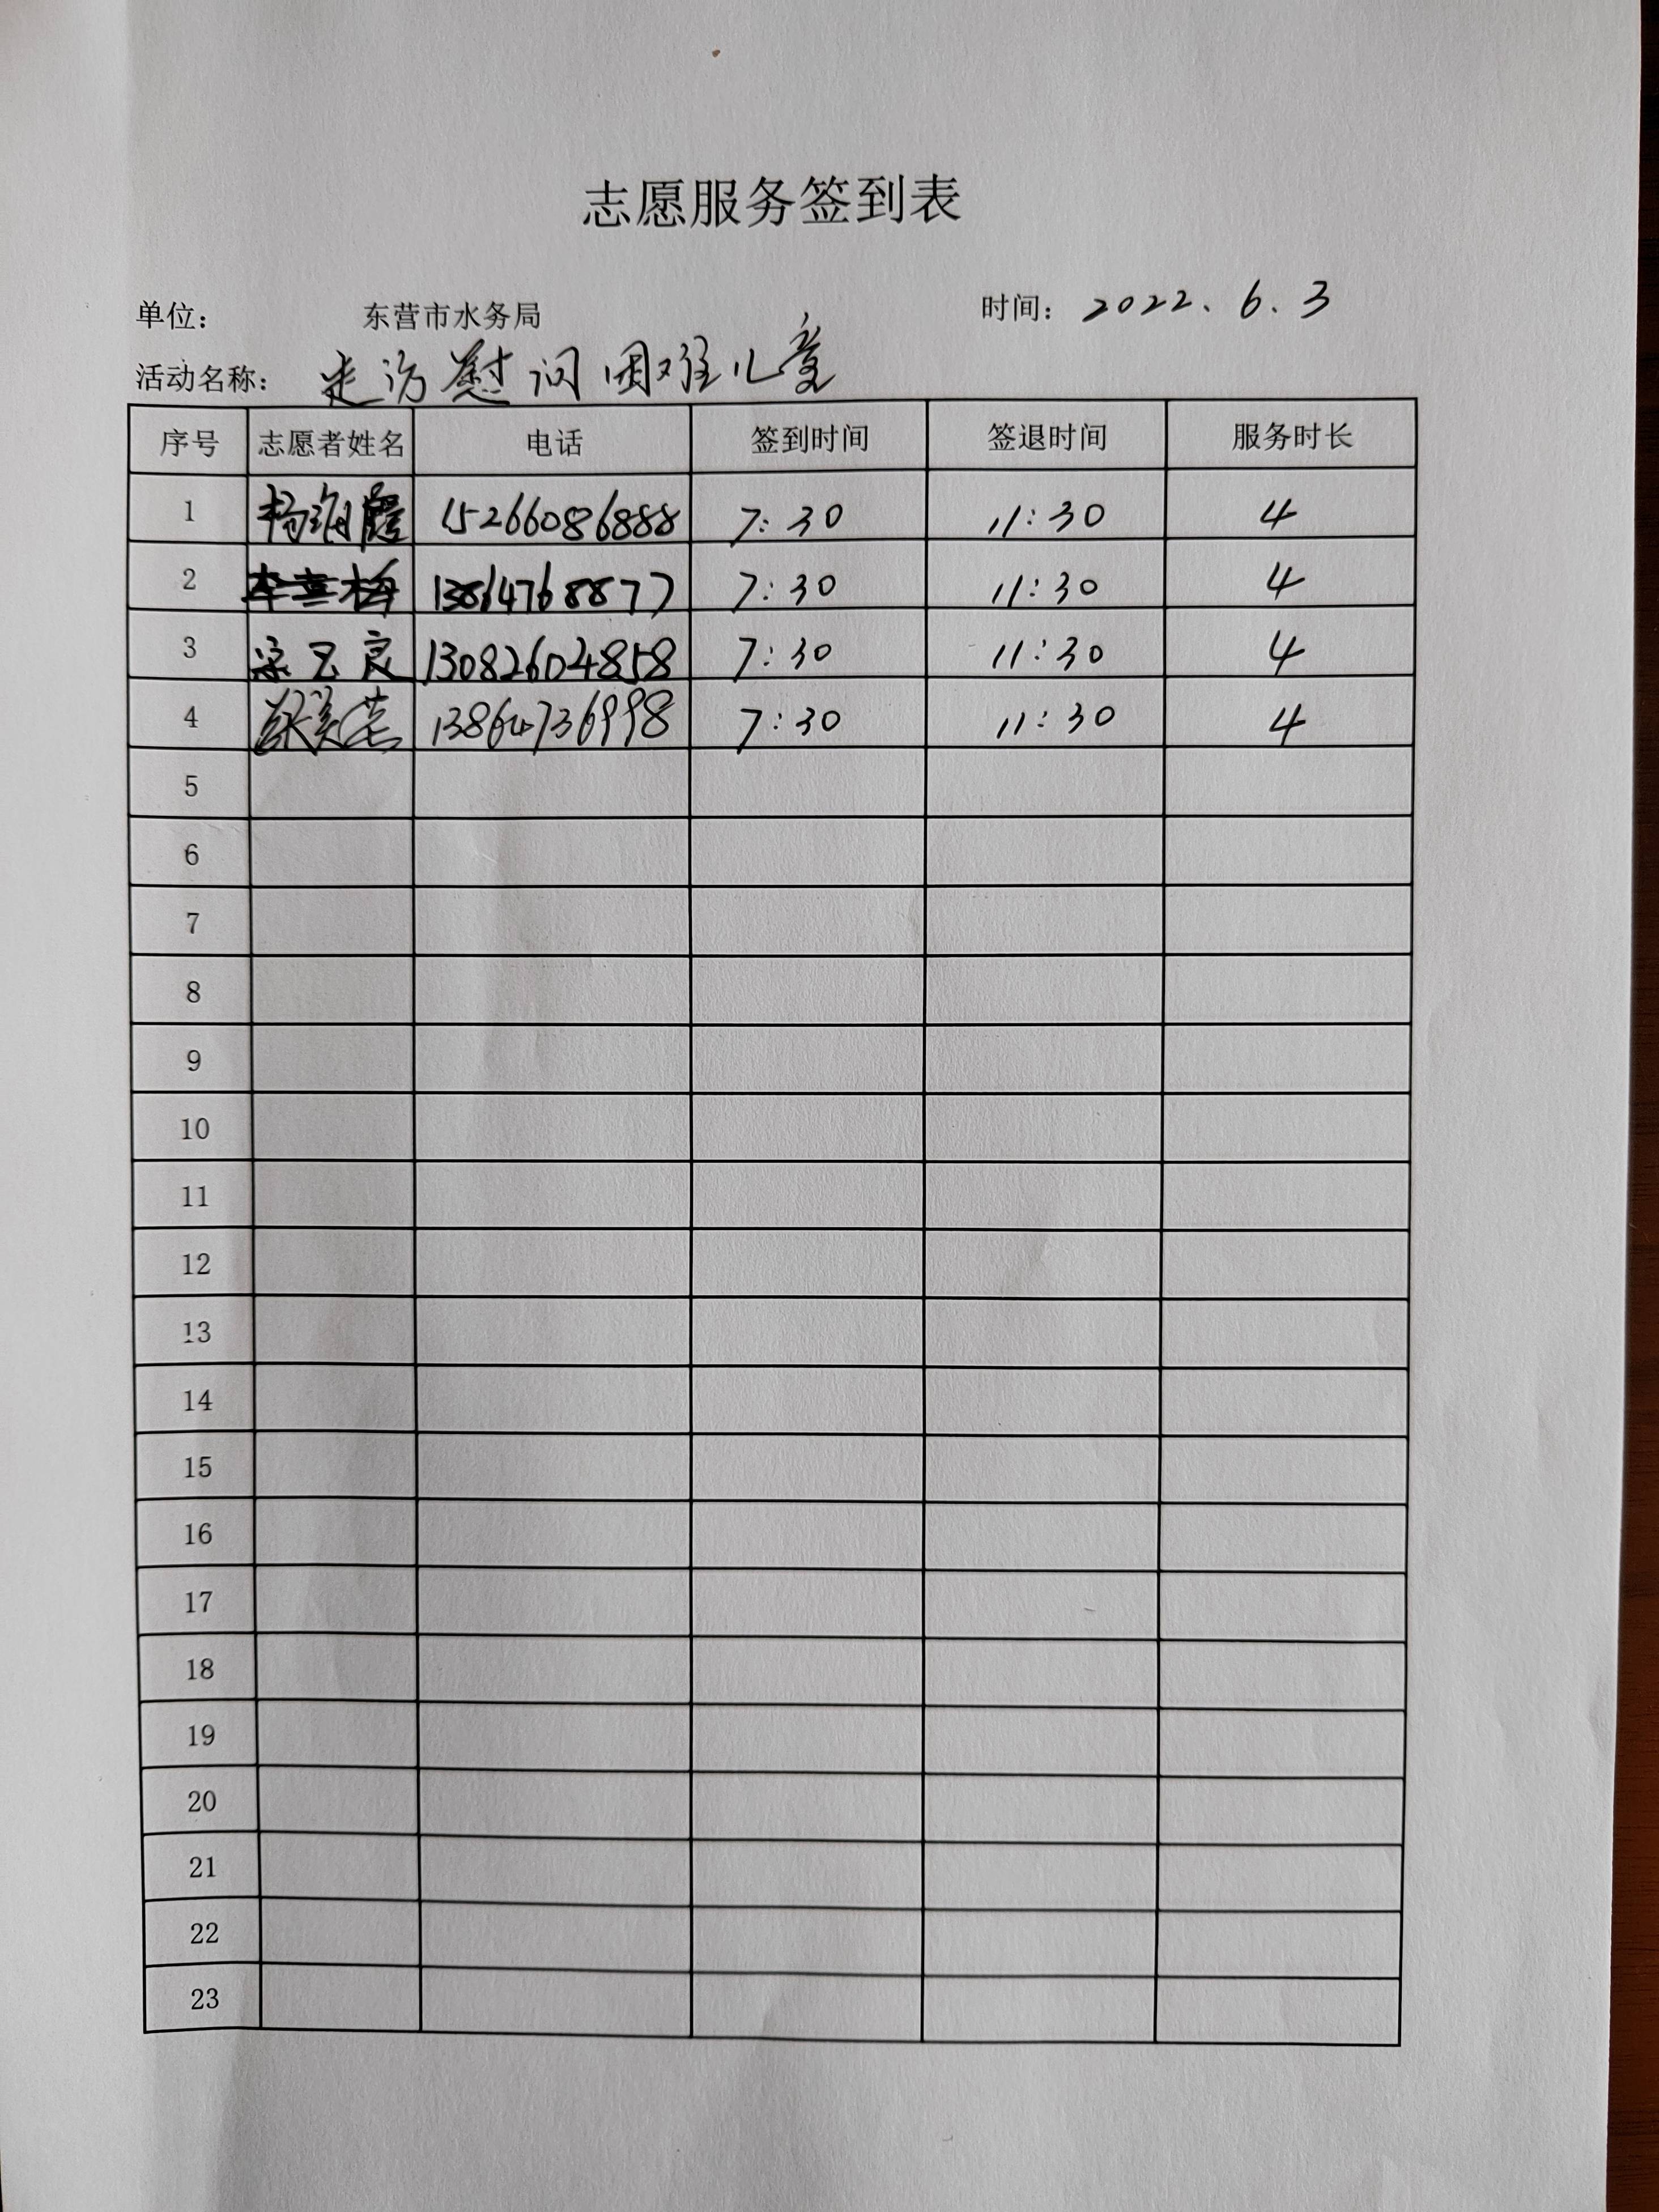 志愿服务签到表
单位： 东营市水务局 时间：2022.6.3
活动名称：走访慰问困难儿童
序号 志愿者姓名 电话 签到时间 签退时间 服务时长
1 杨海霞 15266086888 7:30 11:30 4
2 7:30 11:30 4
3 13082604858 7:30 11:30 4
4 13864736998 7:30 11:30 4
5
6
7
8
9
10
11
12
13
14
15
16
17
18
19
20
21
22
23